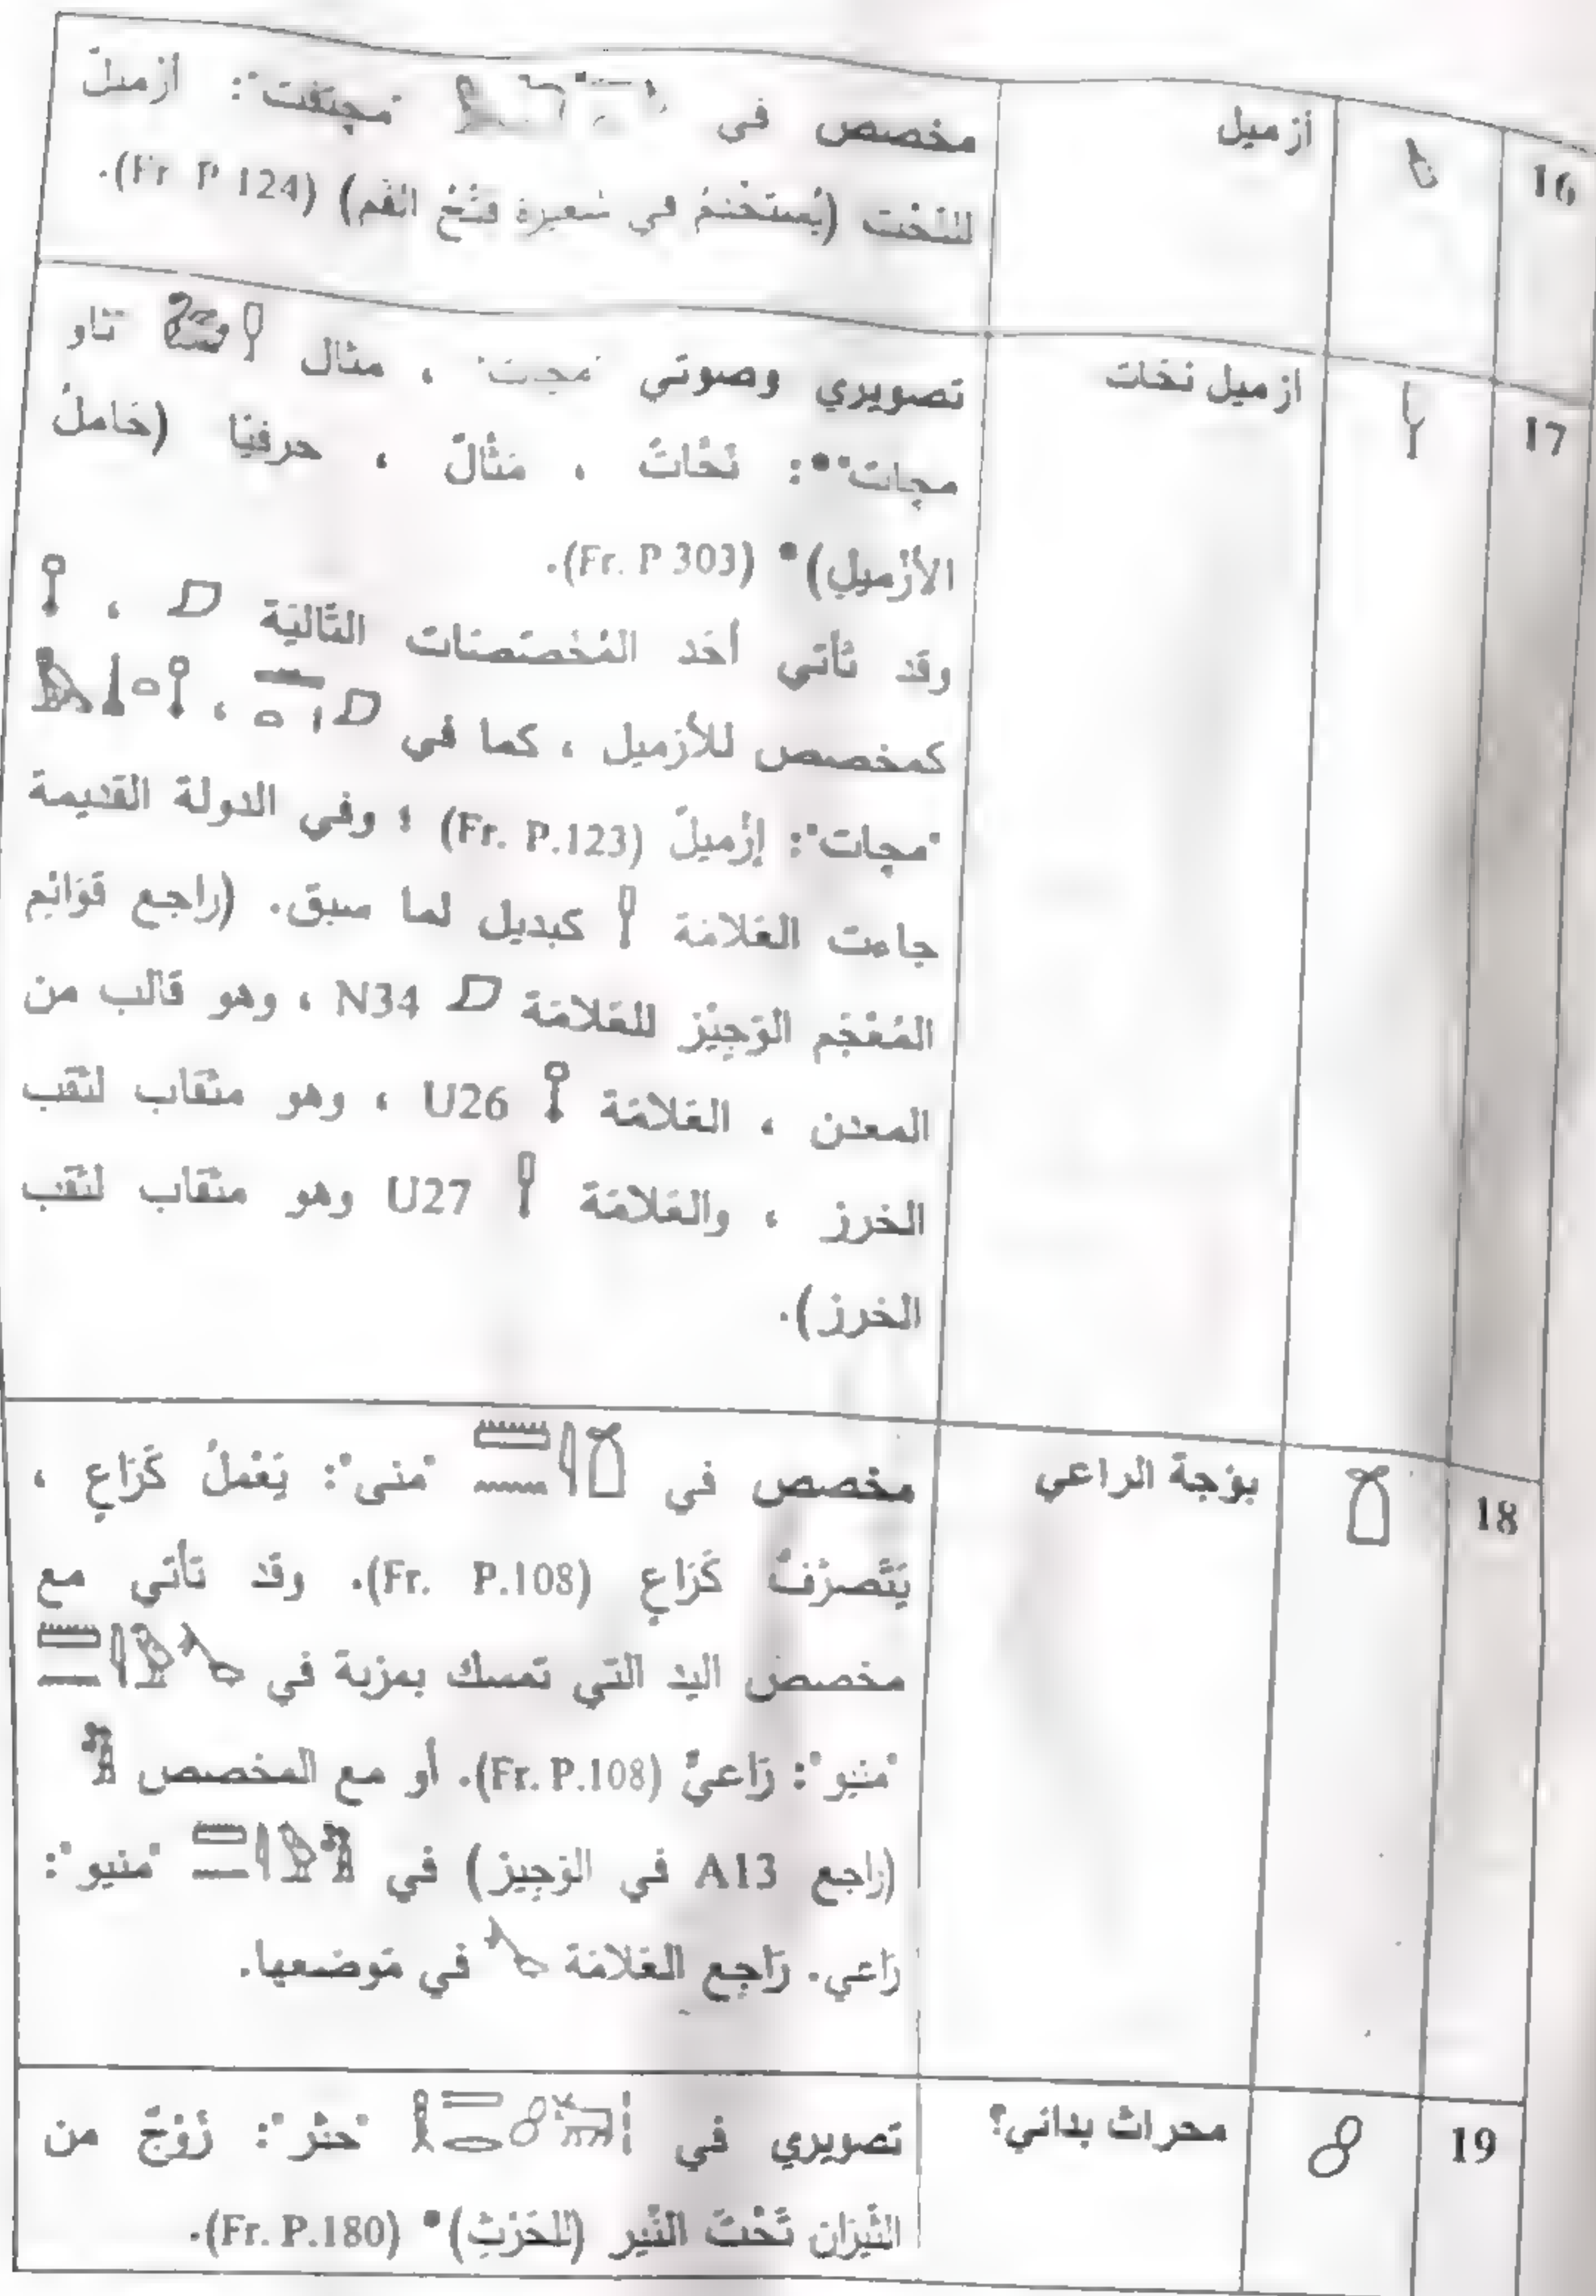 16 أزميل مخصص في "مجتفت": أزميلٌ
للنَّحْت (يُستَخْدَمُ في شعيرة فَتْحُ الفَم) (Fr P 124).
17 ازميل نخات تصويري وصوتي "مجات" ، مثال "ثاو
مجات"*: نَحَّاتٌ ، مَثَّالٌ ، حرفيًا (حَاملُ
الأزْميلِ)* (Fr. P 303).
وقد تأتي أحَد المُخَصَصَات التَّاليَة ،
كمخصص للأزميل ، كما في ،
"مجات": إزْميلٌ (Fr. P.123) ؛ وفي الدولة القديمة
جاءت العَلامَة كبديل لما سبق. (راجع قَوَائِم
المُعْجَم الوَجِيْز للعَلامَة N34 ، وهو قالب من
المعدن ، العَلامَة U26 ، وهو مثقاب لثقب
الخرز ، والعَلامَة U27 وهو مثقاب لثقب
الخرز).
18 بؤجة الراعي مخصص في "منى": يَعْملُ كَرَاعٍ ،
يَتَّصرَّفُ كَرَاعٍ (Fr. P.108). وقد تأتي مع
مخصص اليد التي تمسك بمزبة في
"منيو": رَاعيٌ (Fr. P.108). أو مع المخصص
(راجع A13 في الوَجِيز) في "منيو":
رَاعي. رَاجع العَلامَة في مَوضَعها.
19 محراث بدائي؟ تصويري في "حتر": زَوْجٌ من
الثِّيرَان تَحْتَ النَّير (للحَرْثِ)* (Fr. P.180).